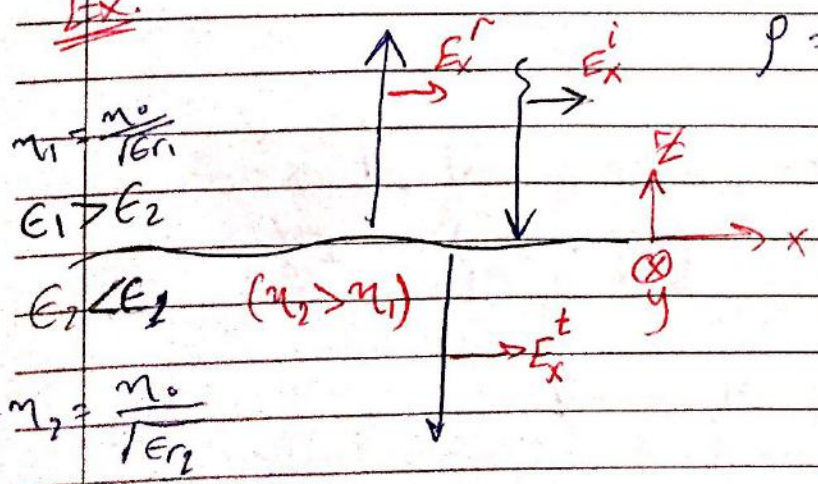 Ex.
E_x^r E_x^i ρ =
η_1 = η_0/√ϵ_r1
Z
ϵ_1 > ϵ_2
x
ϵ_2 < ϵ_1 (η_2 > η_1) y
E_x^t
η_2 = η_0/√ϵ_r2